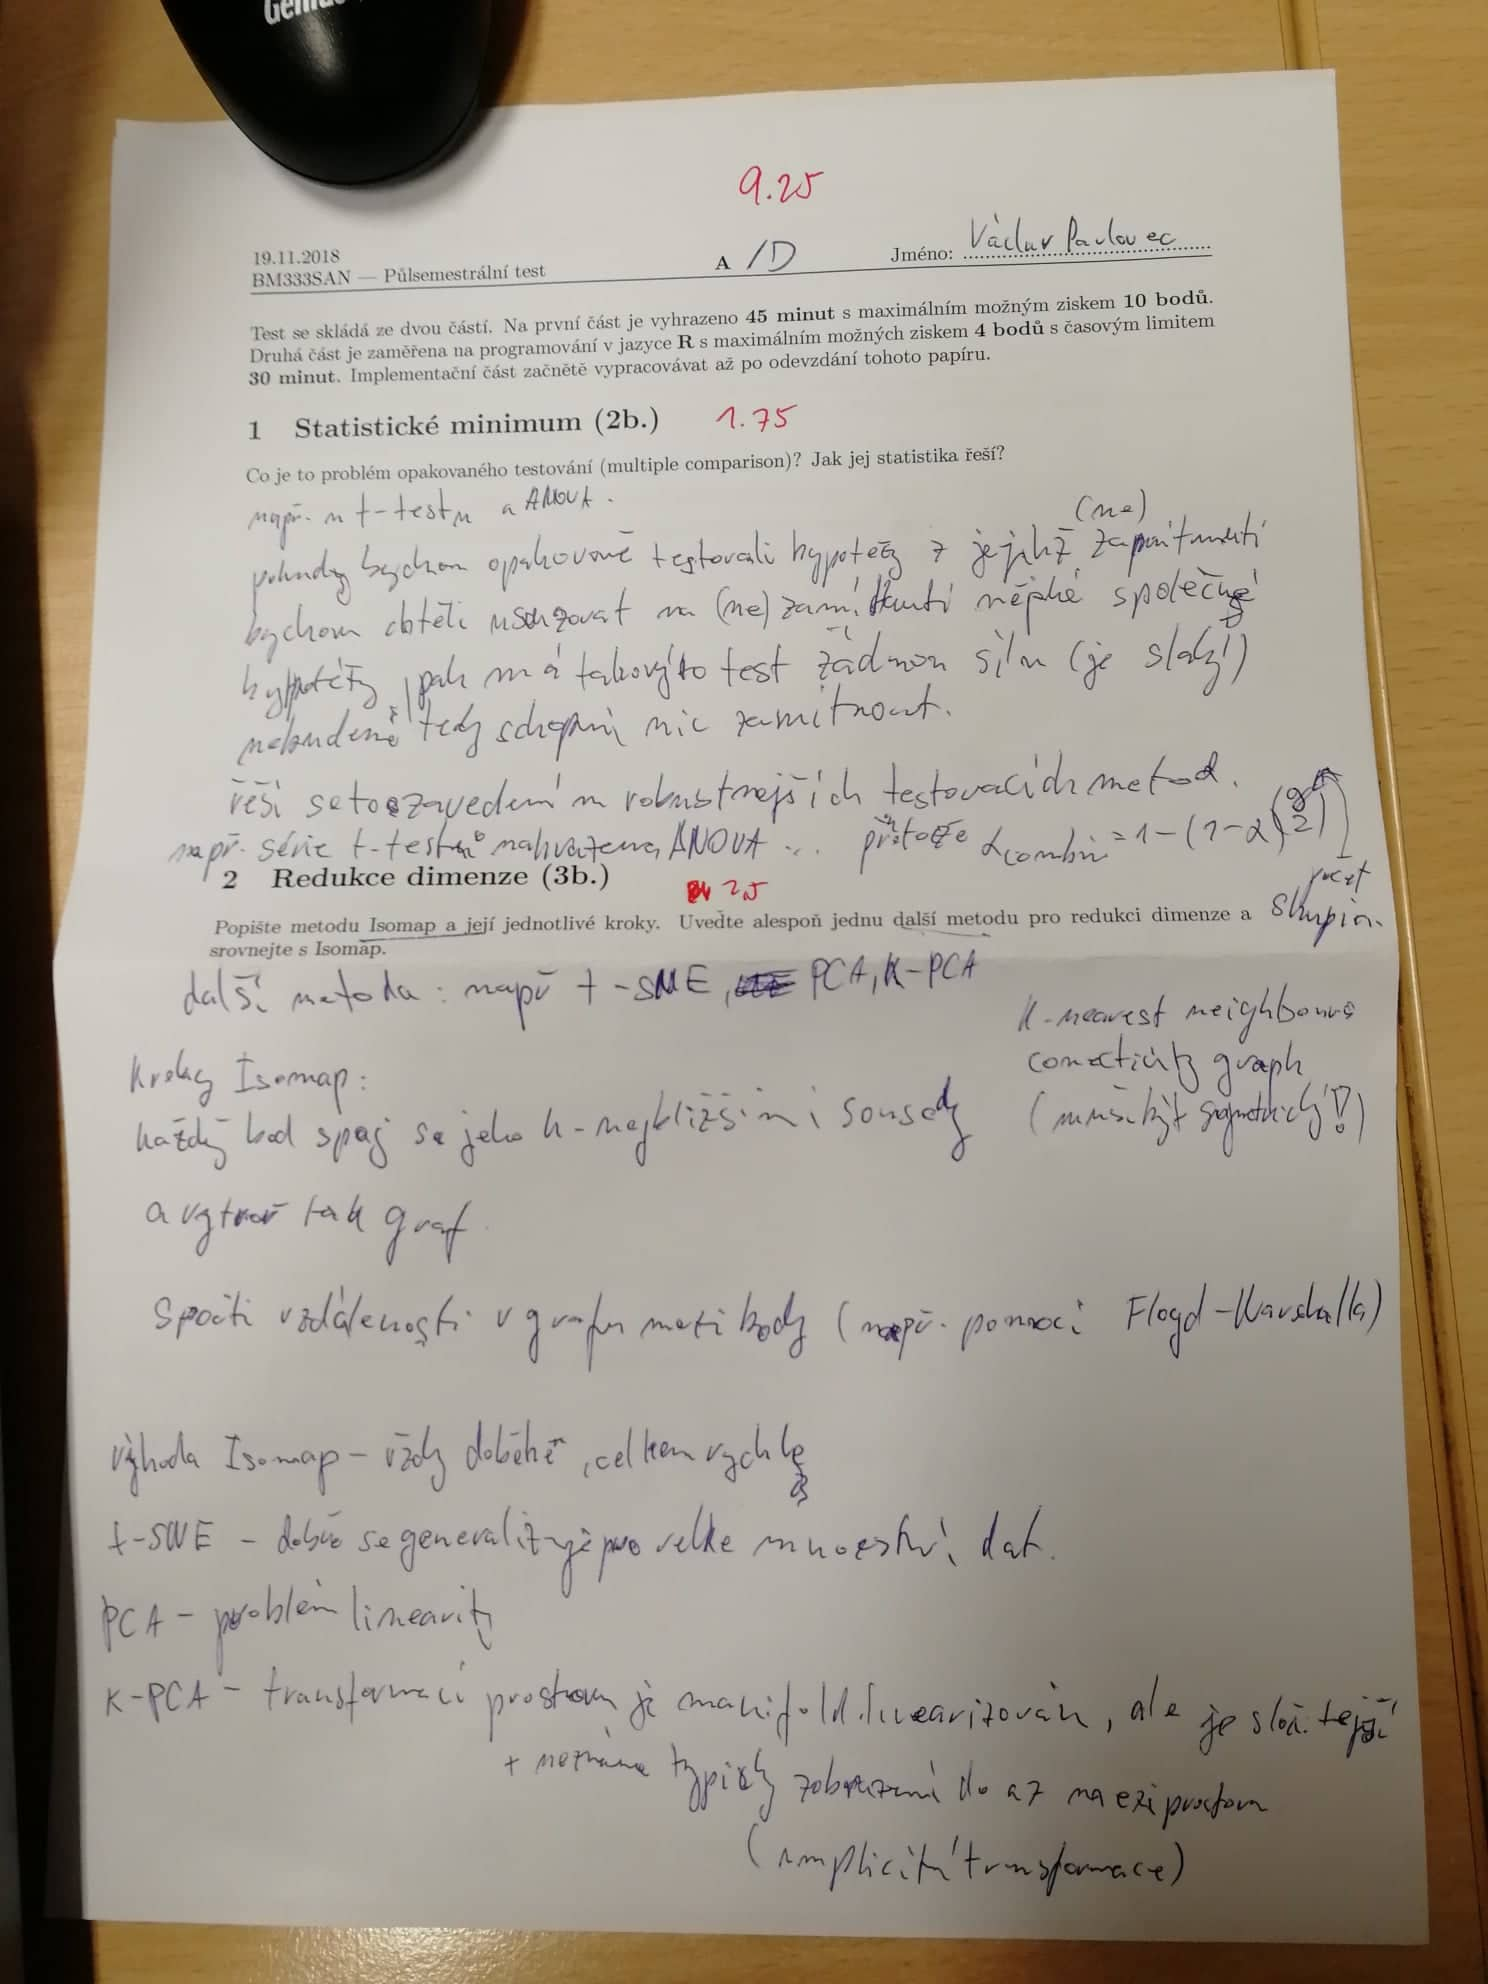 Genius
9.25
19.11.2018
BM333SAN — Půlsemestrální test
A /D
Jméno: Václav Pavlovec
Test se skládá ze dvou částí. Na první část je vyhrazeno 45 minut s maximálním možným ziskem 10 bodů.
Druhá část je zaměřena na programování v jazyce R s maximálním možných ziskem 4 bodů s časovým limitem
30 minut. Implementační část začnětě vypracovávat až po odevzdání tohoto papíru.
1 Statistické minimum (2b.) 1.75
Co je to problém opakovaného testování (multiple comparison)? Jak jej statistika řeší?
např. u t-testu a ANOVA.
(ne)
pokud bychom opakovaně testovali hypotézy z jejichž zamítnutí
bychom chtěli usuzovat na (ne)zamítnutí nějaké společné
hypotézy, pak má takovýto test žádnou sílu (je slabý)
nebudeme tedy schopni nic zamítnout.
řeší se to zavedením robustnějších testovacích metod.
např. série t-testů nahrazena ANOVA ... protože αcombin = 1-(1-α)
počet
skupin.
2 Redukce dimenze (3b.) 2,5
Popište metodu Isomap a její jednotlivé kroky. Uveďte alespoň jednu další metodu pro redukci dimenze a
srovnejte s Isomap.
další metoda: např t-SNE, PCA, K-PCA
K-nearest neighbours
conectivity graph
(musí být symetrický!)
Kroky Isomap:
každý bod spoj se jeho k-nejbližšími sousedy
a vytvoř tak graf.
Spočti vzdálenosti v grafu mezi body (např. pomocí Floyd-Warshalla)
výhoda Isomap - vždy doběhě, celkem rychle
t-SNE - dobře se generalizuje pro velké množství dat.
PCA - problém linearity
K-PCA - transformací prostoru je manifold linearizován, ale je složitější
+ neznáme typicky zobrazení do a z meziprostoru
(implicitní transformace)